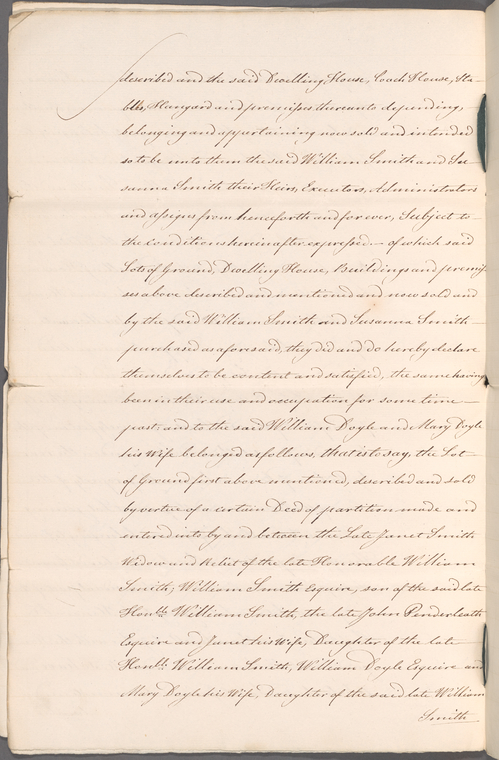 described and the said Dwelling House, Coach House, Sta-
bles, Henyard and premisses thereunto depending
belonging and appertaining now sold and intended
so to be unto them the said William Smith and Su-
sanna Smith their Heirs, Executors, Administrators
and assigns from henceforth and for ever, Subject to
the conditions herein after expressed — of which said
Lots of Ground, Dwelling House, Buildings and premis-
ses above described and mentioned and now sold and
by the said William Smith and Susanna Smith
purchased as aforesaid, they did and do hereby declare
themselves to be content and satisfied, the same having
been in their use and occupation for some time
past, and to the said William Doyle and Mary Doyle
his Wife belonged as follows, that is to say, the Lot
of Ground first above mentioned, described and sold
by vertue of a certain Deed of partition made and
entered into by and between the Late Janet Smith
Widow and Relict of the late Honorable William
Smith, William Smith Esquire, son of the said late
Honble. William Smith, the late John Penderleath
Esquire and Janet his Wife, Daughter of the late
Honble. William Smith, William Doyle Esquire and
Mary Doyle his Wife, Daughter of the said late William
Smith